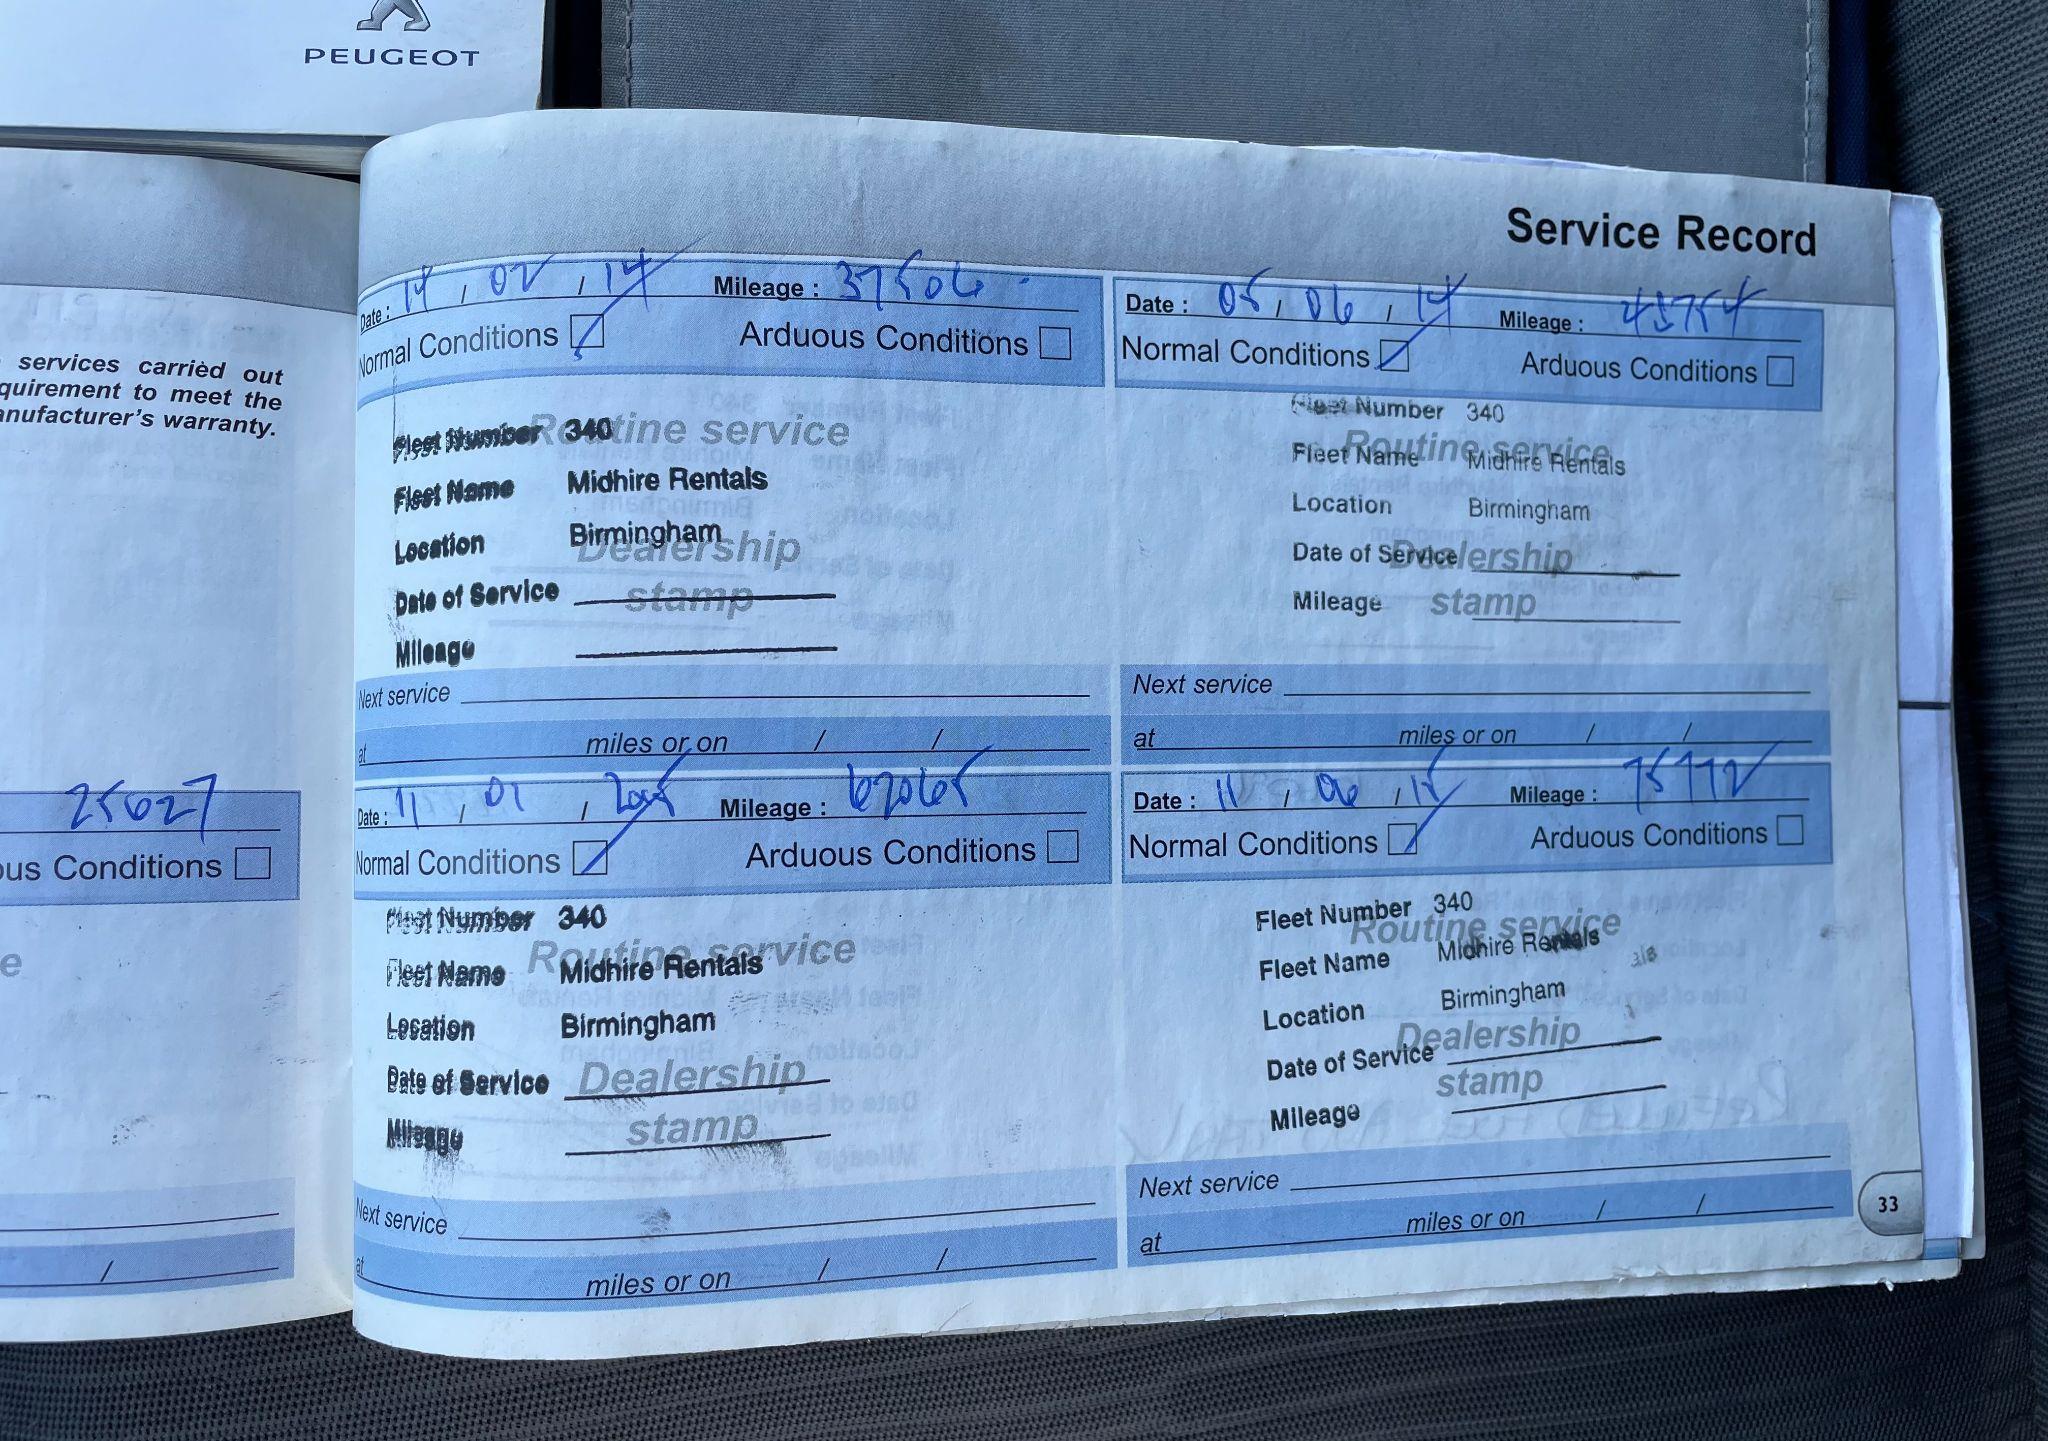 PEUGEOT
services carried out
quirement to meet the
anufacturer's warranty.
25627
ous Conditions
e
/
Service Record
Date : 14 / 02 / 14 Mileage : 37506
Normal Conditions Arduous Conditions
Routine service
Dealership
stamp
Fleet Number 340
Fleet Name Midhire Rentals
Location Birmingham
Date of Service
Mileage
Next service
at miles or on / /
Date : 05 / 06 / 14 Mileage :
Normal Conditions Arduous Conditions
Routine service
Dealership
stamp
Fleet Number 340
Fleet Name Midhire Rentals
Location Birmingham
Date of Service
Mileage
Next service
at miles or on / /
Date : 11 / 01 / 2015 Mileage : 67065
Normal Conditions Arduous Conditions
Routine service
Dealership
stamp
Fleet Number 340
Fleet Name Midhire Rentals
Location Birmingham
Date of Service
Mileage
Next service
at miles or on / /
Date : 11 / 06 / 15 Mileage : 75772
Normal Conditions Arduous Conditions
Routine service
Dealership
stamp
Fleet Number 340
Fleet Name Midhire Rentals
Location Birmingham
Date of Service
Mileage
Next service
at miles or on / /
33